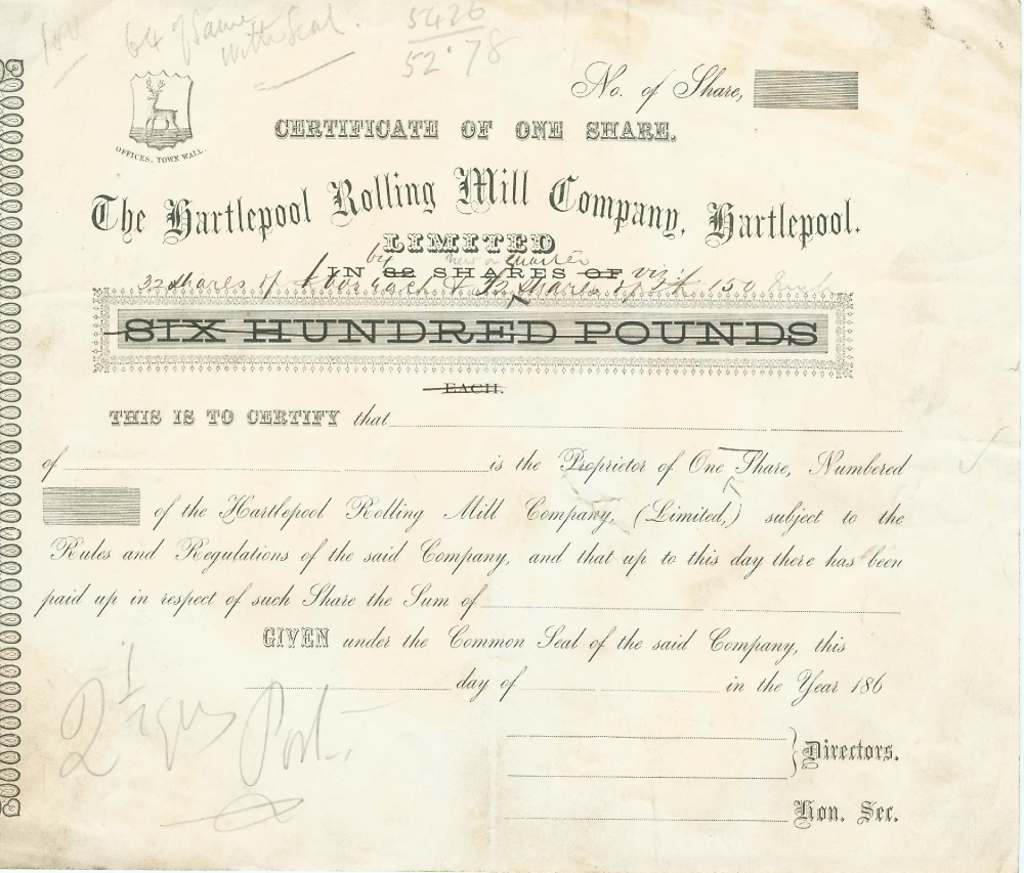 64 of Same
with Seal.
5426
52.78
No. of Share,
OFFICES, TOWN WALL.
CERTIFICATE OF ONE SHARE.
The Hartlepool Rolling Mill Company, Hartlepool.
LIMITED
by quarter
IN 32 SHARES OF viz:
32 shares of each & 32 shares of 150
SIX HUNDRED POUNDS
EACH.
THIS IS TO CERTIFY that
of is the Proprietor of One Share, Numbered
of the Hartlepool Rolling Mill Company, (Limited,) subject to the
Rules and Regulations of the said Company, and that up to this day there has been
paid up in respect of such Share the Sum of
GIVEN under the Common Seal of the said Company, this
day of in the Year 186
Directors.
Hon. Sec.